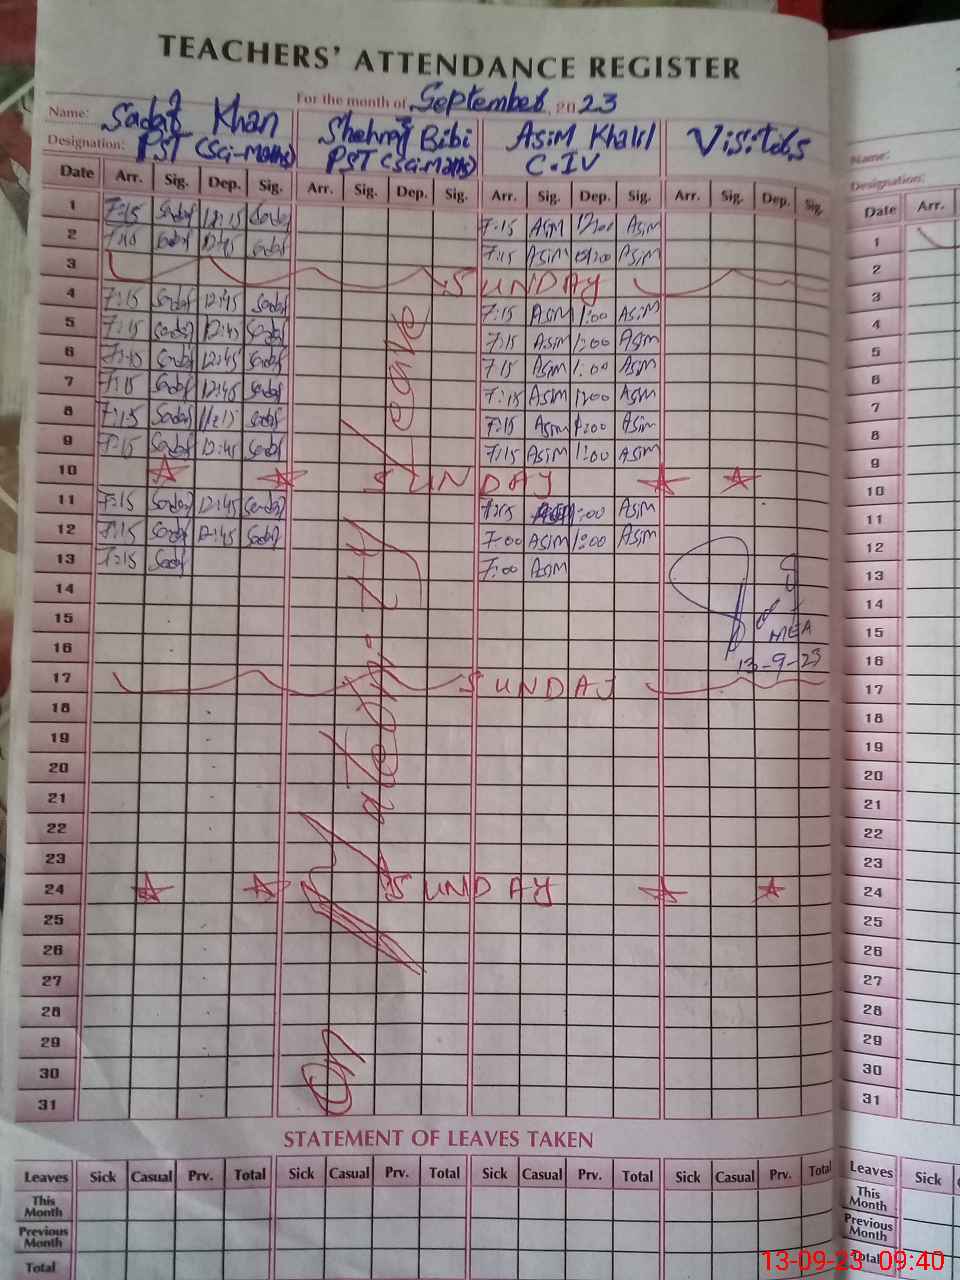 TEACHERS' ATTENDANCE REGISTER
For the month of September, 2023
Name: Sadaf Khan Shehnaj Bibi Asim Khalil Visitors
Designation: PST (Sci-Maths) PST (Sci-Maths) C-IV
Date Arr. Sig. Dep. Sig. Arr. Sig. Dep. Sig. Arr. Sig. Dep. Sig. Arr. Sig. Dep. Sig.
1 7:15 Sadaf Sadaf 7:15 Asim Asim
2 Sadaf 12:45 Sadaf 7:15 Asim Asim
3 SUNDAY
4 7:15 Sadaf 12:45 Sadaf 7:15 Asim 1:00 Asim
5 7:15 Sadaf 12:45 Sadaf 7:15 Asim 1:00 Asim
6 Sadaf 12:45 Sadaf 7:15 Asim 1:00 Asim
7 7:15 Sadaf 12:45 Sadaf 7:15 Asim 1:00 Asim
8 7:15 Sadaf Sadaf 7:15 Asim Asim
9 7:15 Sadaf 12:45 Sadaf 7:15 Asim 1:00 Asim
10 SUNDAY
11 7:15 Sadaf 12:45 Sadaf 7:15 1:00 Asim
12 7:15 Sadaf 12:45 Sadaf 7:00 Asim 1:00 Asim
13 7:15 Sadaf 7:00 Asim
14
15 MEA
16 13-9-23
17 SUNDAY
18
19
20
21
22
23
24 SUNDAY
25
26
27
28
29
30
31
On Maternity Leave
STATEMENT OF LEAVES TAKEN
Leaves Sick Casual Prv. Total Sick Casual Prv. Total Sick Casual Prv. Total Sick Casual Prv. Total
This Month
Previous Month
Total
Name:
Designation:
Date Arr.
1
2
3
4
5
6
7
8
9
10
11
12
13
14
15
16
17
18
19
20
21
22
23
24
25
26
27
28
29
30
31
Leaves Sick
This Month
Previous Month
Total
13-09-23 09:40